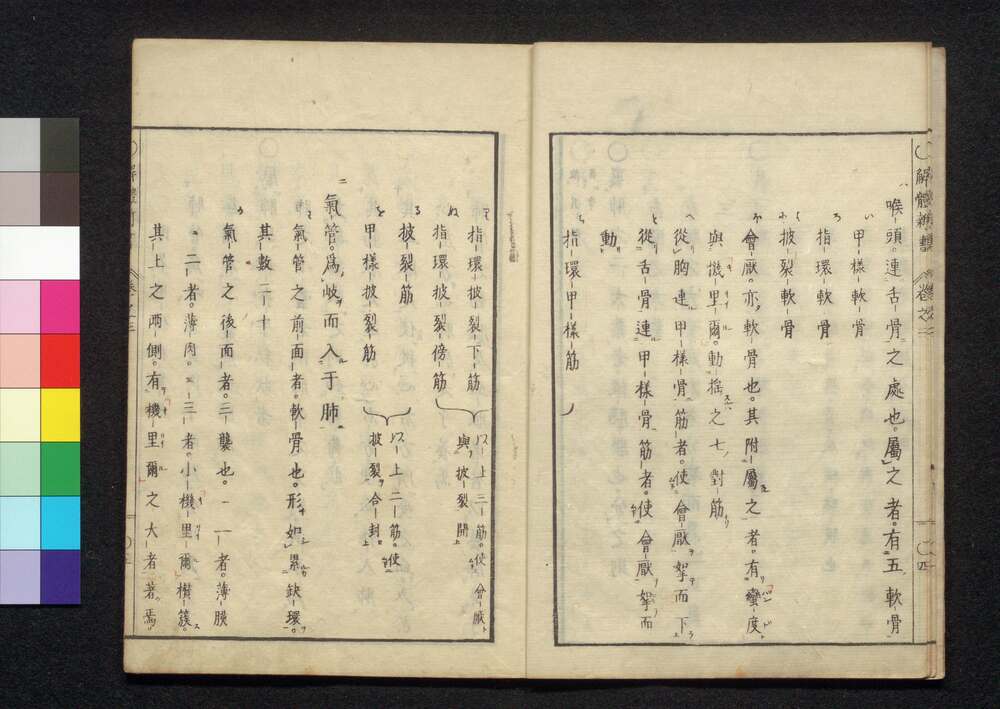 解體新書
卷之三
四
喉頭。連舌骨之處也。屬之者。有五軟骨
い 甲様軟骨
ろ 指環軟骨
は に 披裂軟骨
ほ 會厭。亦軟骨也。其附屬之者。有蠻度
與機里爾。動搖之七對筋
へ 從胸連甲様骨筋者。使會厭挐而下
と 從舌骨連甲様骨筋者。使會厭挐而
動
ち 指環甲様筋
り 指環披裂下筋
ぬ 指環披裂傍筋
以上三筋。使會厭
與披裂開
る 披裂筋
を 甲様披裂筋
以上二筋。使
披裂合封。
二 氣管。爲岐而入于肺
わ 氣管之前面者。軟骨也。形如累缺環。
其數二十
か 氣管之後面者。三襲也。一一者。薄膜
二者。薄肉。三者。小機里爾櫕簇。
其上之兩側。有機里爾之大者著焉。